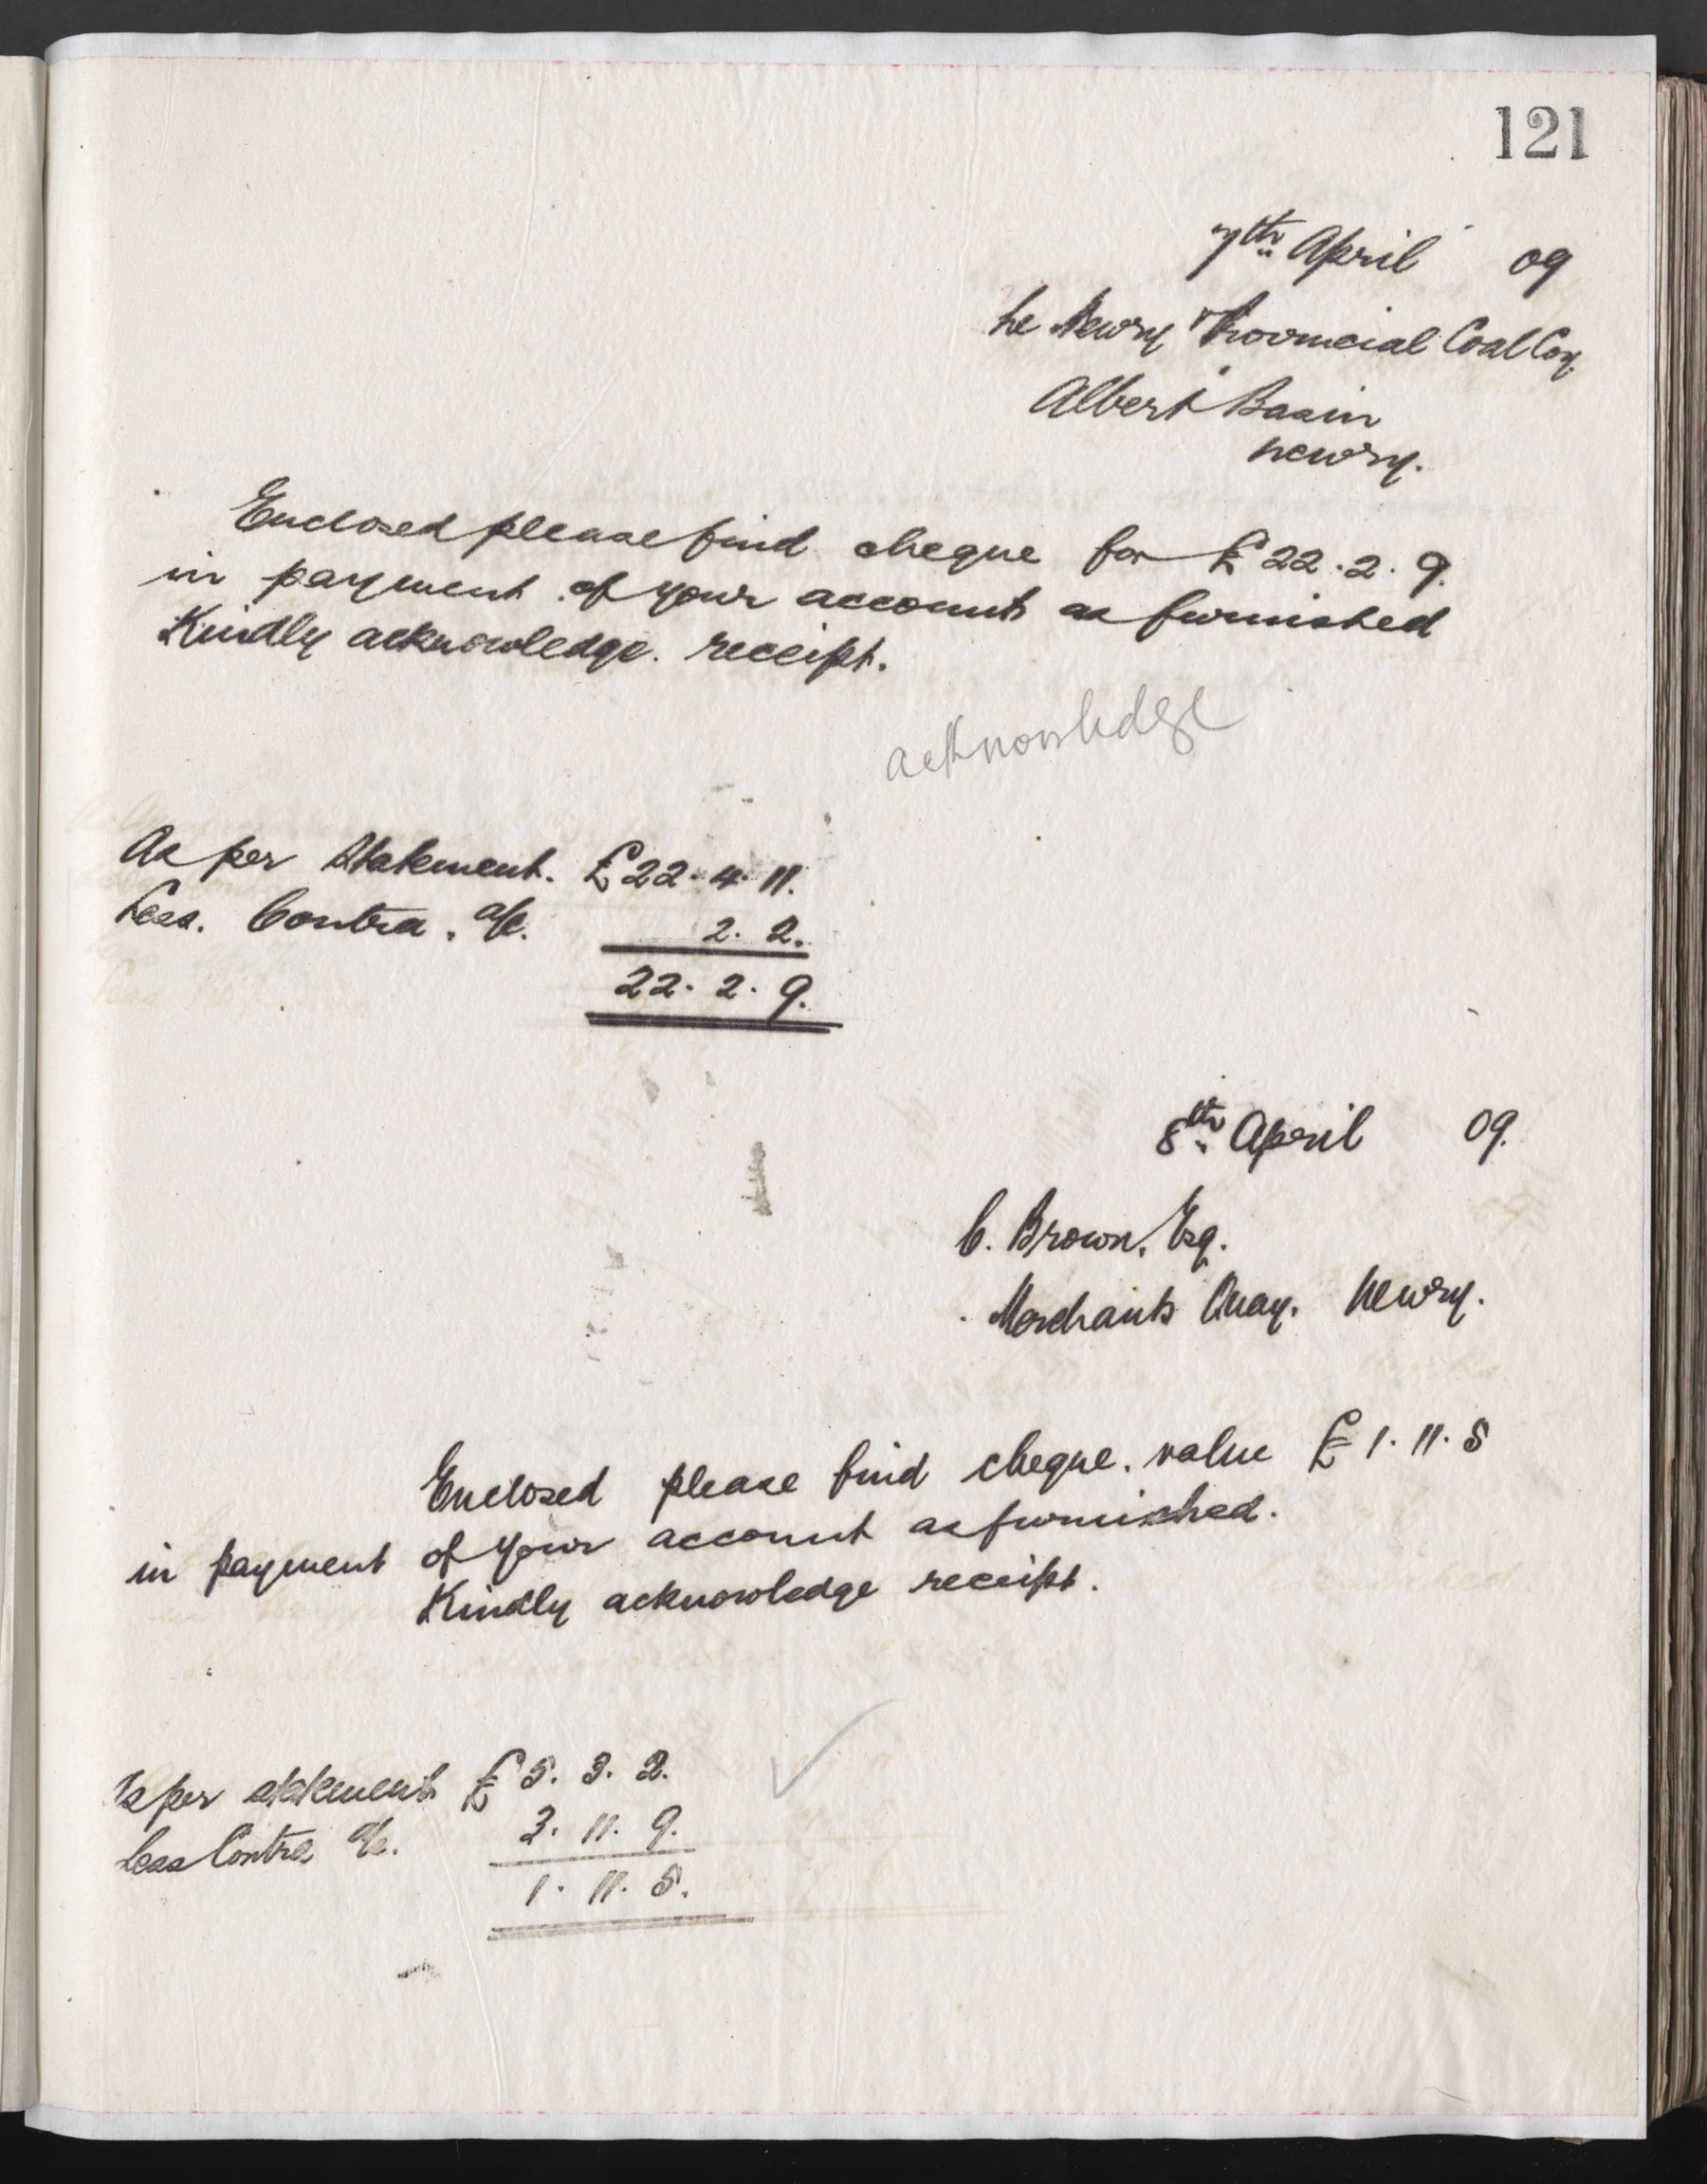 121
7th April 09
he Newry & Provincial Coal Coy
Albert Basin
Newry.
Enclosed please find cheque for £22.2.9.
in payment of your account as furnished
Kindly acknowledge. receipt.
acknowledge
As per Statement. £22.4.11.
Less. Contra. a/c. 2.2.
22.2.9.
8th April 09.
C. Brown. Esq.
Merchants Quay. Newry.
Enclosed please find cheque. value £1.11.5
in payment of your account as furnished.
Kindly acknowledge receipt.
As per statement £5.3.2.
Less Contra a/c. 3.11.9.
1.11.5.